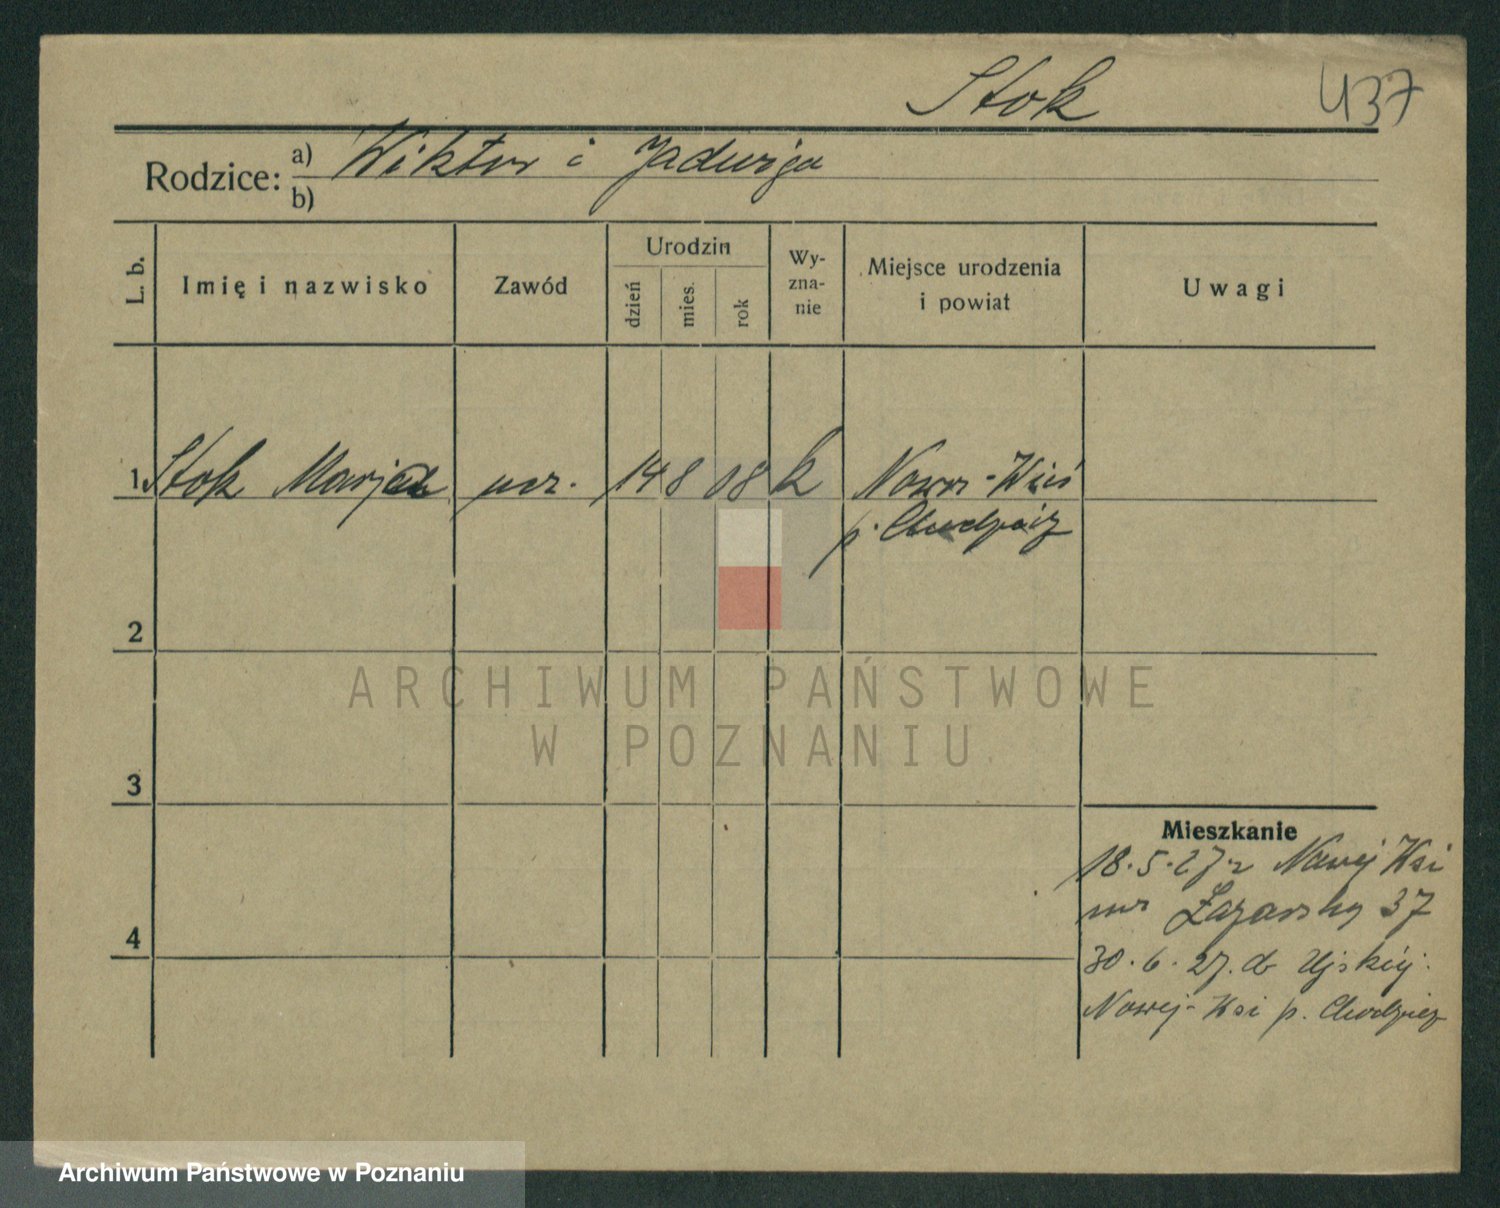 Stok 437
Rodzice: a) Wiktor i Jadwiga
b)
L. b. Imię i nazwisko Zawód Urodzin dzień mies. rok Wy-zna-nie Miejsce urodzenia i powiat Uwagi
1 Stok Marja ucz. 14 8 08 k Nowa-Wieś
p. Chodzież
2
3
4
Mieszkanie
18.5.27 z Nowej Wsi
Łazarska 37
30.6.27. do Ujskiej
Nowej-Wsi p. Chodzież
ARCHIWUM PAŃSTWOWE
W POZNANIU
Archiwum Państwowe w Poznaniu